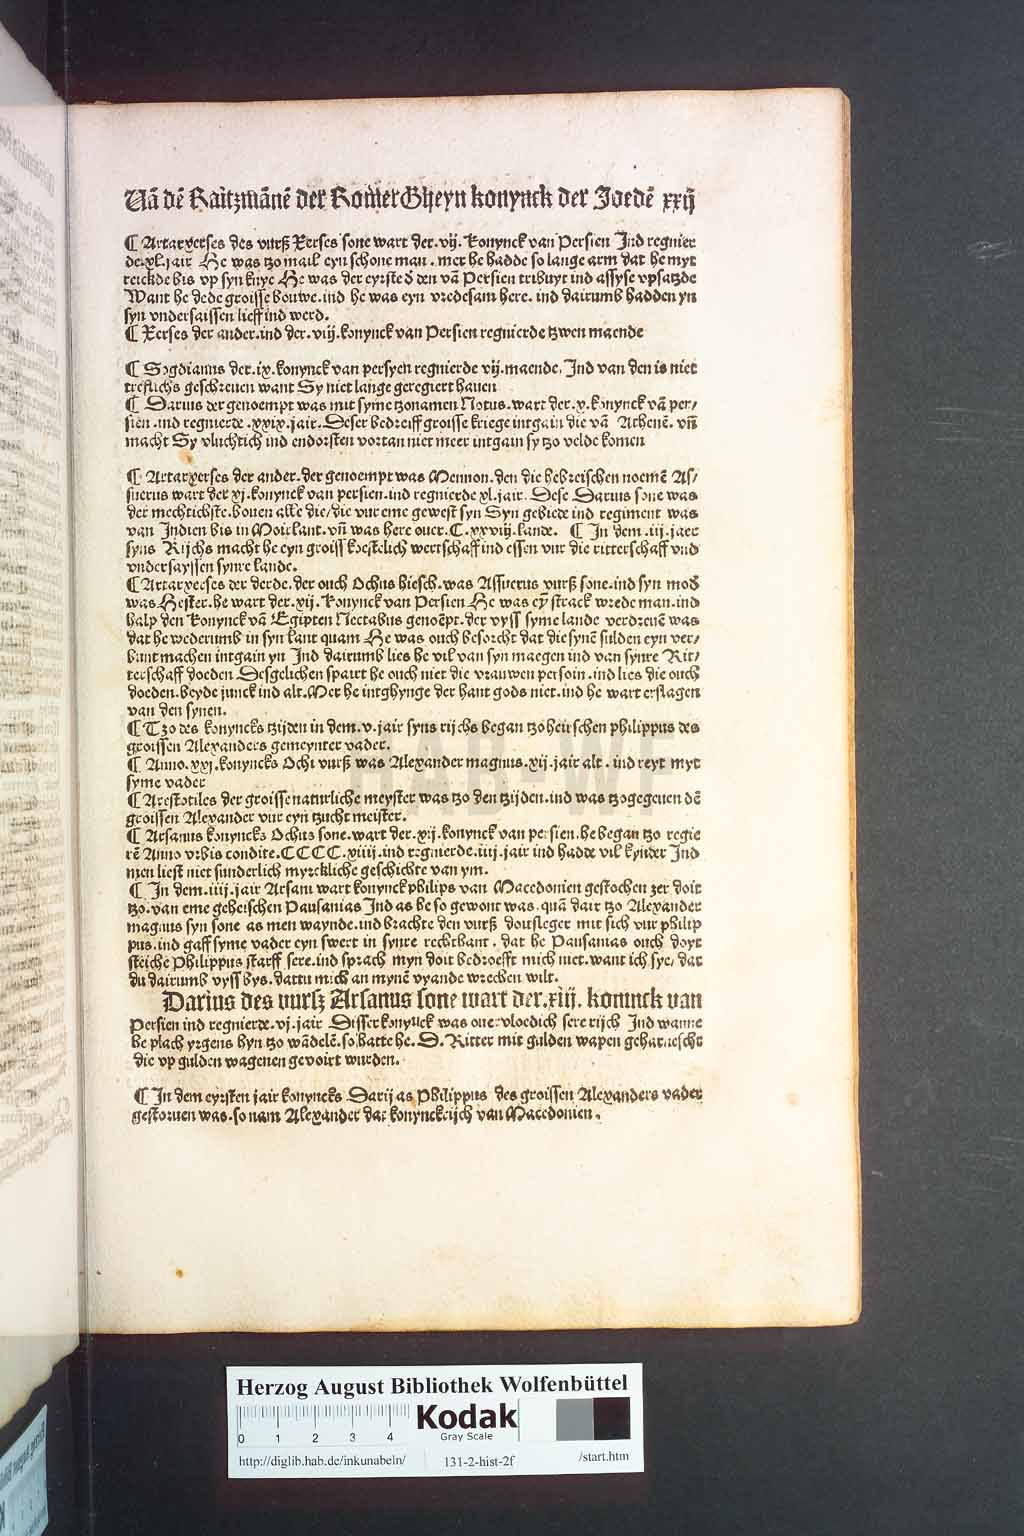 Uā dē Raitzmānē der Romer Gheyn konynck der Joedē xxij
¶ Artaxerses des vurß Xerses sone wart der.vij. konynck van Persien Ind regnier
de.xl.jair He was tzo mail eyn schone man. mer he hadde so lange arm dat he myt
reickde bis vp syn knye He was der eyrste d̄ den vā Persien tribuyt ind assyse vpsatzde
Want he dede groisse bouwe.ind he was eyn vredesam here. ind dairumb hadden yn
syn vndersaissen lieff ind werd.
¶ Xerses der ander.ind der.viij.konynck van Persien regnierde tzwen maende
¶ Sogdianus der.ix.konynck van persyen regnierde vij.maende, Ind van den is niet
treflichs geschreuen want Sy niet lange geregiert hauen
¶ Darius der genoempt was mit syme tzonamen Notus.wart der.x.konynck vā per/
sien.ind regnierde.xxix.jair.Deser bedreiff groisse kriege intgain die vā Athenē. vñ
macht Sy vluchtich ind endorsten vortan niet meer intgain sy tzo velde komen
¶ Artaxerses der ander.der genoempt was Mennon.den die hebreischen noemē As/
suerus wart der xj.konynck van persien.ind regnierde xl.jair. Dese Darius sone was
der mechtichste.bouen alle die/die vur eme gewest syn Syn gebiede ind regiment was
van Indien bis in Moirlant.vñ was here ouer.C.xxviij.lande. ¶ In dem.iij.jaer
syns Rijchs macht he eyn groiss koestelich wertschaff ind essen vur die ritterschaff vnd
vndersayssen synre lande.
¶ Artaxerses der derde.der ouch Ochus hiesch.was Assuerus vurß sone.ind syn mod̄
was Hester.he wart der.xij. konynck van Persien He was eȳ strack wrede man.ind
halp den konynck vā Egipten Nectabus genoēpt.der vyss syme lande verdreuē was
dat he wederumb in syn lant quam He was ouch besorcht dat die synē sulden eyn ver/
bunt machen intgain yn Ind dairumb lies he vil van syn maegen ind van synre Rit/
terschaff doeden Desgelichen spairt he ouch niet die vrauwen persoin.ind lies die ouch
doeden.beyde junck ind alt.Mer he intghynge der hant gods niet.ind he wart erslagen
van den synen.
¶ Tzo des konyncks tzijden in dem.v.jair syns rijchs began tzo heirschen philippus des
groissen Alexanders gemeynter vader.
¶ Anno.xxj.konyncks Ochi vurß was Alexander magnus.xij.jair alt. ind reyt myt
syme vader
¶ Arestotiles der groisse naturliche meyster was tzo den tzijden.ind was tzogegeuen dē
groissen Alexander vur eyn tzucht meister.
¶ Arsanus konyncks Ochus sone.wart der.xij.konynck van persien.he began tzo regie
rē Anno vrbis condite.CCCC.xiiij.ind regnierde.iiij.jair ind hadde vil kynder Ind
men liest niet sunderlich myrckliche geschichte van ym.
¶ In dem.iiij.jair Arsani wart konynck philips van Macedonien gestochen zer doit
tzo.van eme geheischen Pausanias Ind as he so gewont was.quā dair tzo Alexander
magnus syn sone as men waynde.ind brachte den vurß doitsleger mit sich vur philip
pus.ind gaff syme vader eyn swert in synre rechthant. dat he Pausanias ouch doyt
steiche Philippus starff sere.ind sprach myn doit bedroefft mich niet.want ich sye/ dat
du dairumb vyss bys.dattu mich an mynē vyande wrechen wilt.
Darius des vurß Arsanus sone wart der.xiij. koninck van
Persien ind regnierde.vj.jair Disser konynck was ouervloedich sere rijch Ind wanne
he plach yrgens hyn tzo wādelē.so hatte he.D.Ritter mit gulden wapen geharnescht
die vp gulden wagenen gevoirt wurden.
¶ In dem eyrsten jair konyncks Darij as Philippus des groissen Alexanders vader
gestoruen was.so nam Alexander dat konynckrijch van Macedonien.
HAB-WF
Herzog August Bibliothek Wolfenbüttel
0 1 2 3 4
Kodak
Gray Scale
http://diglib.hab.de/inkunabeln/ 131-2-hist-2f /start.htm